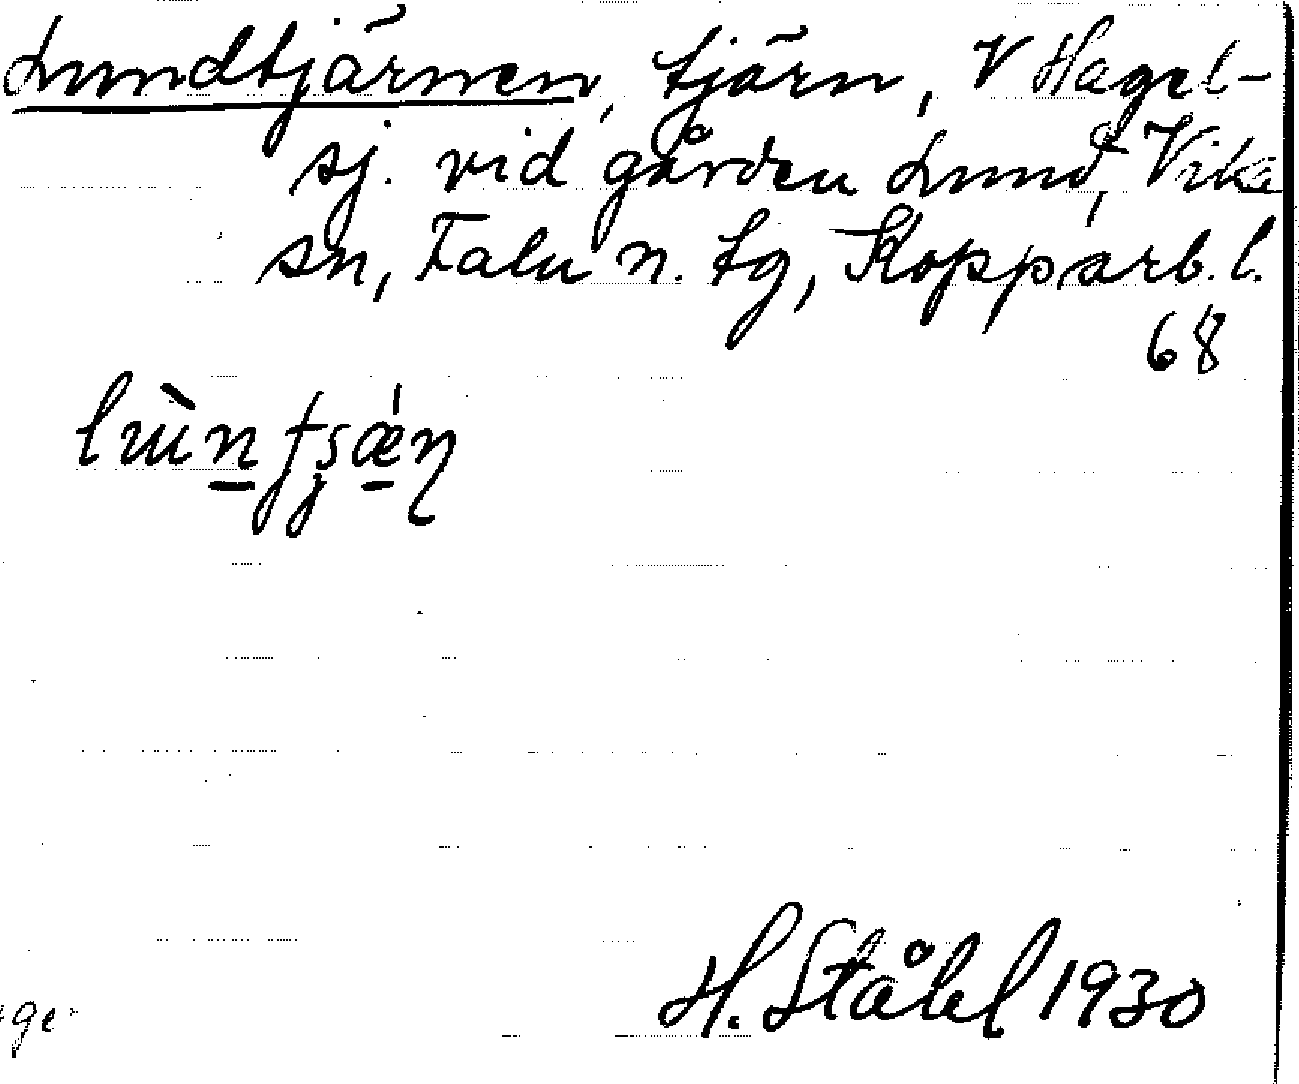 Lundtjärnen, tjärn, V Hagel-
sj. vid gården Lund, Vika
sn, Falu n. tg, Kopparb. l.
68
H. Ståhl 1930